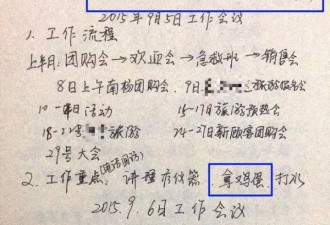 2015年9月5日工作会议
1. 工作流程
上半月:团购会→欢迎会→急救班→销售会
8日上午南杨团购会、9日 旅游报告会
10-14日活动 15-17日旅游预热会
18-22号 旅游 24-27日新顾客团购会
29号大会
(电话回访)
2、工作重点、讲理疗仪器、拿鸡蛋、打水
2015.9.6日工作会议